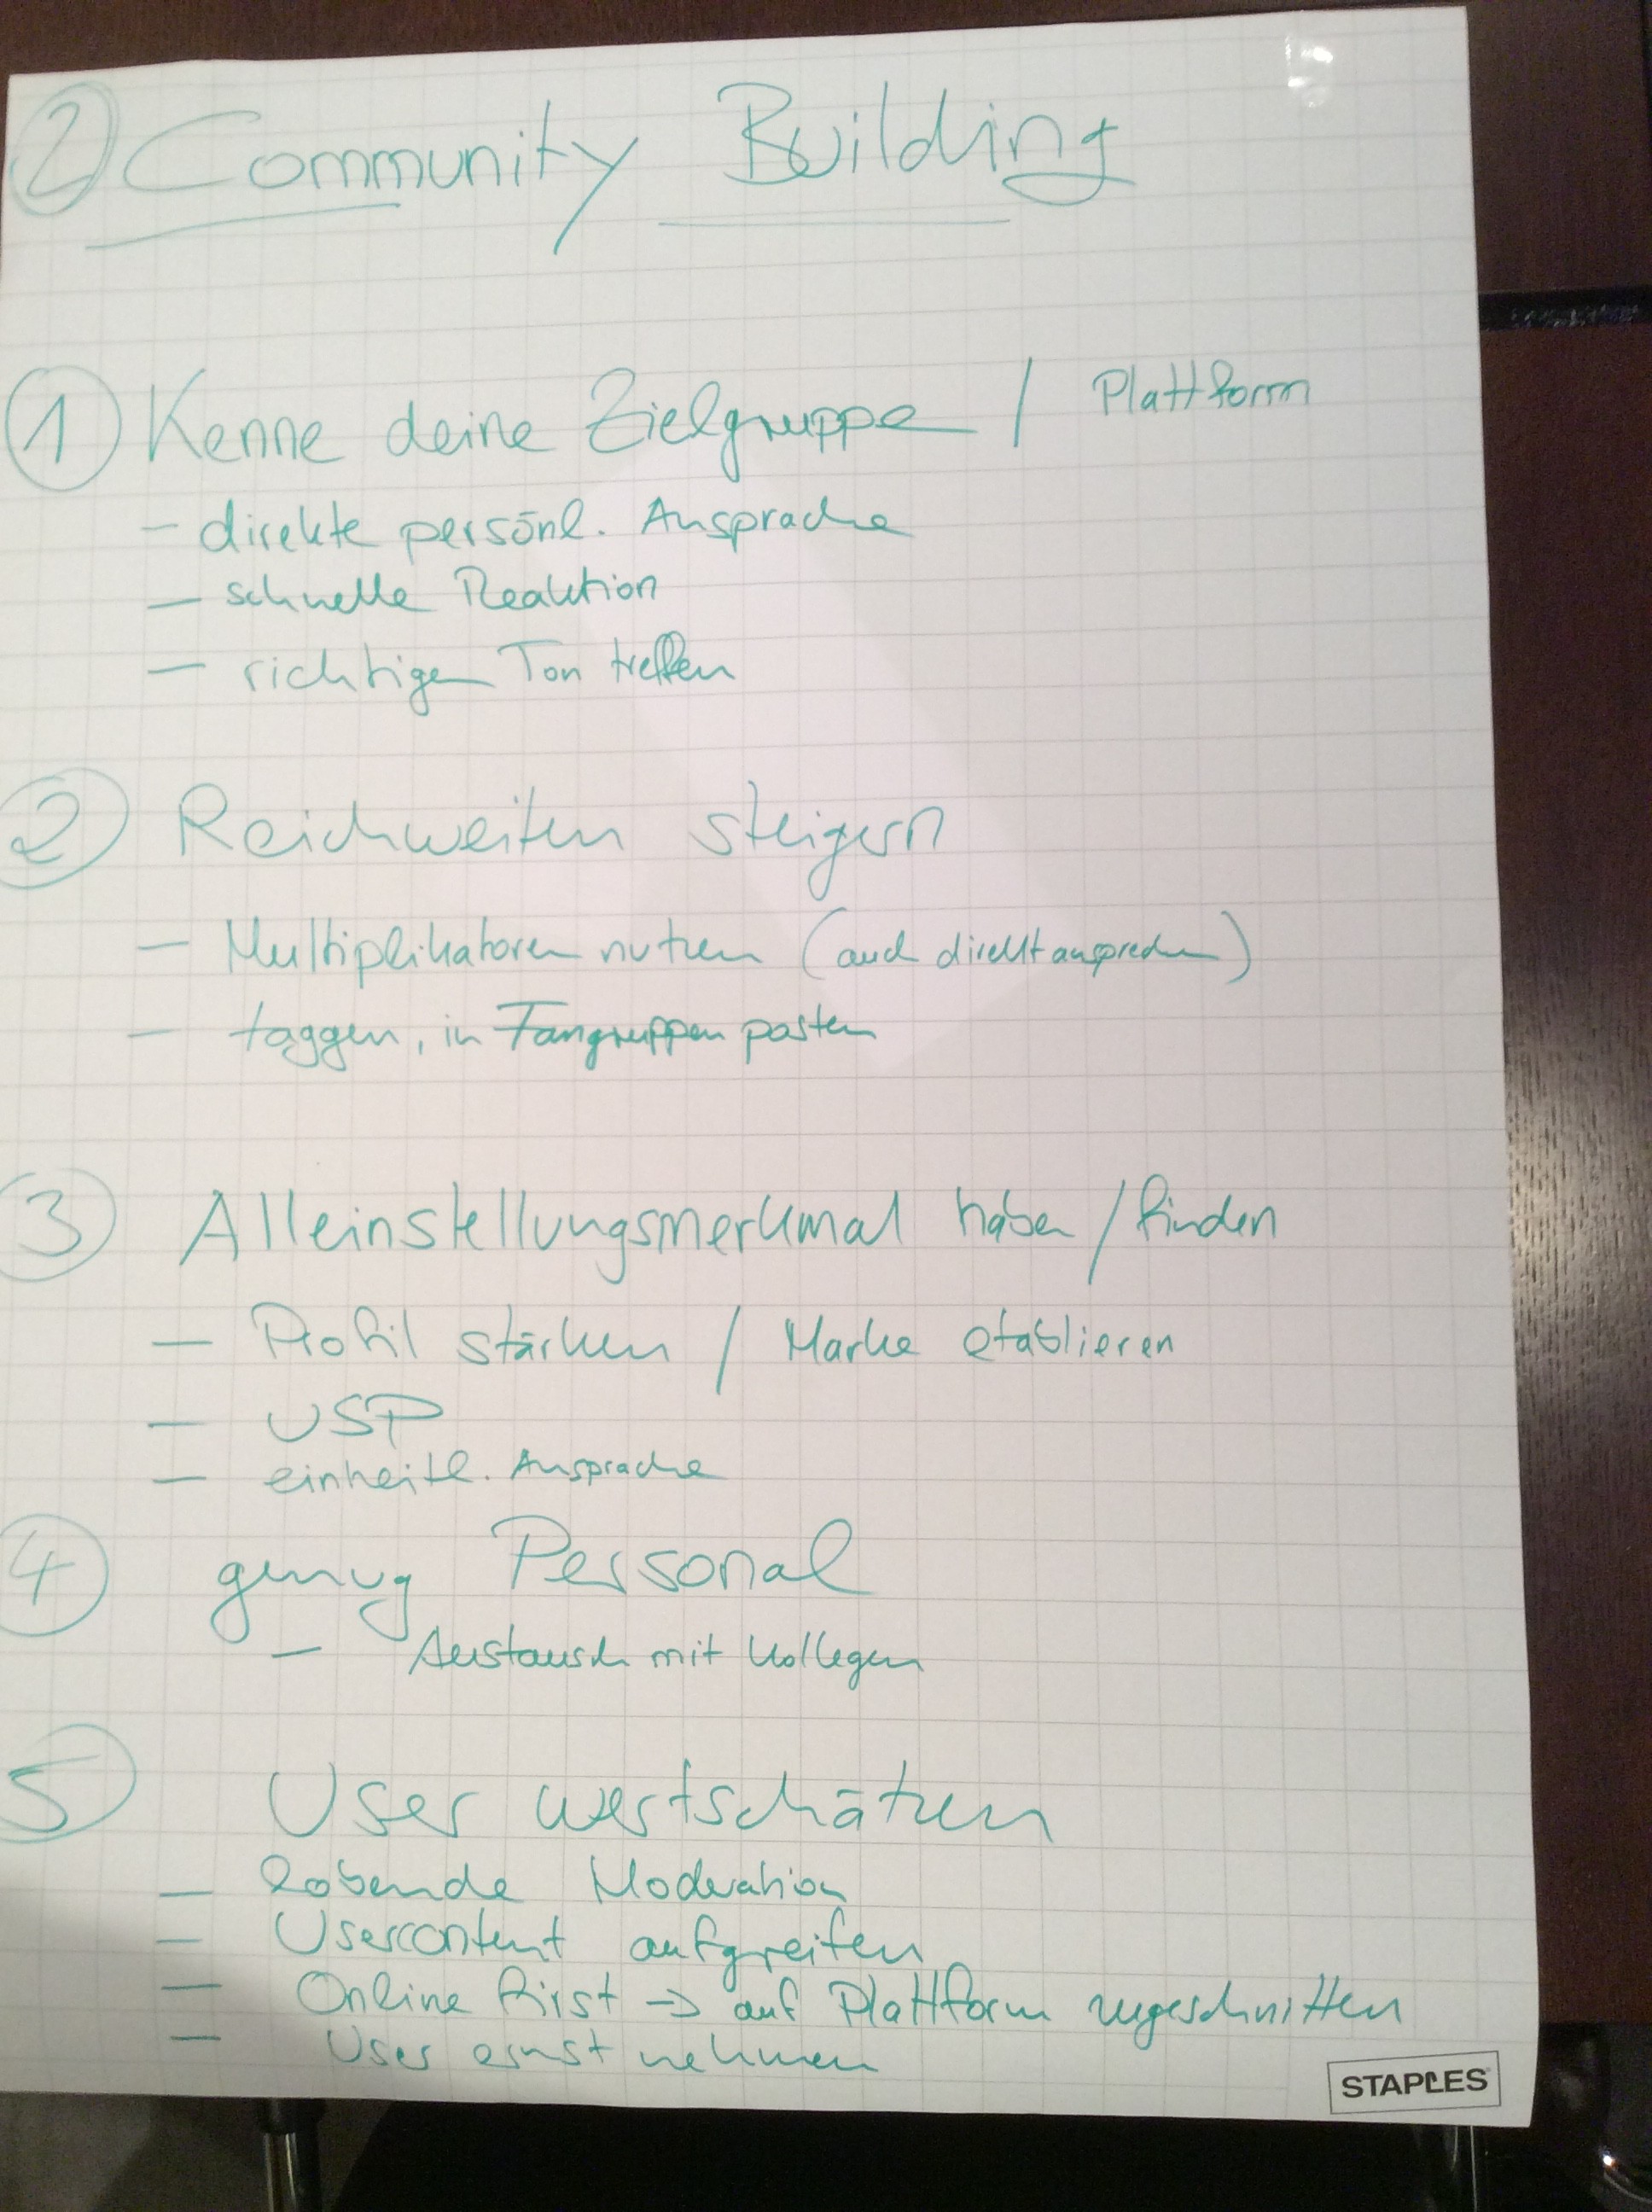 ② Community Building
① Kenne deine Zielgruppe / Plattform
- direkte persönl. Ansprache
- schnelle Reaktion
- richtigen Ton treffen
② Reichweiten steigern
- Multiplikatoren nutzen (auch direkt ansprechen)
- taggen, in Fangruppen posten
③ Alleinstellungsmerkmal haben / finden
- Profil stärken / Marke etablieren
- USP
- einheitl. Ansprache
④ genug Personal
- Austausch mit Kollegen
⑤ User wertschätzen
- lobende Moderation
- Usercontent aufgreifen
- Online first → auf Plattform zugeschnitten
- User ernst nehmen
STAPLES